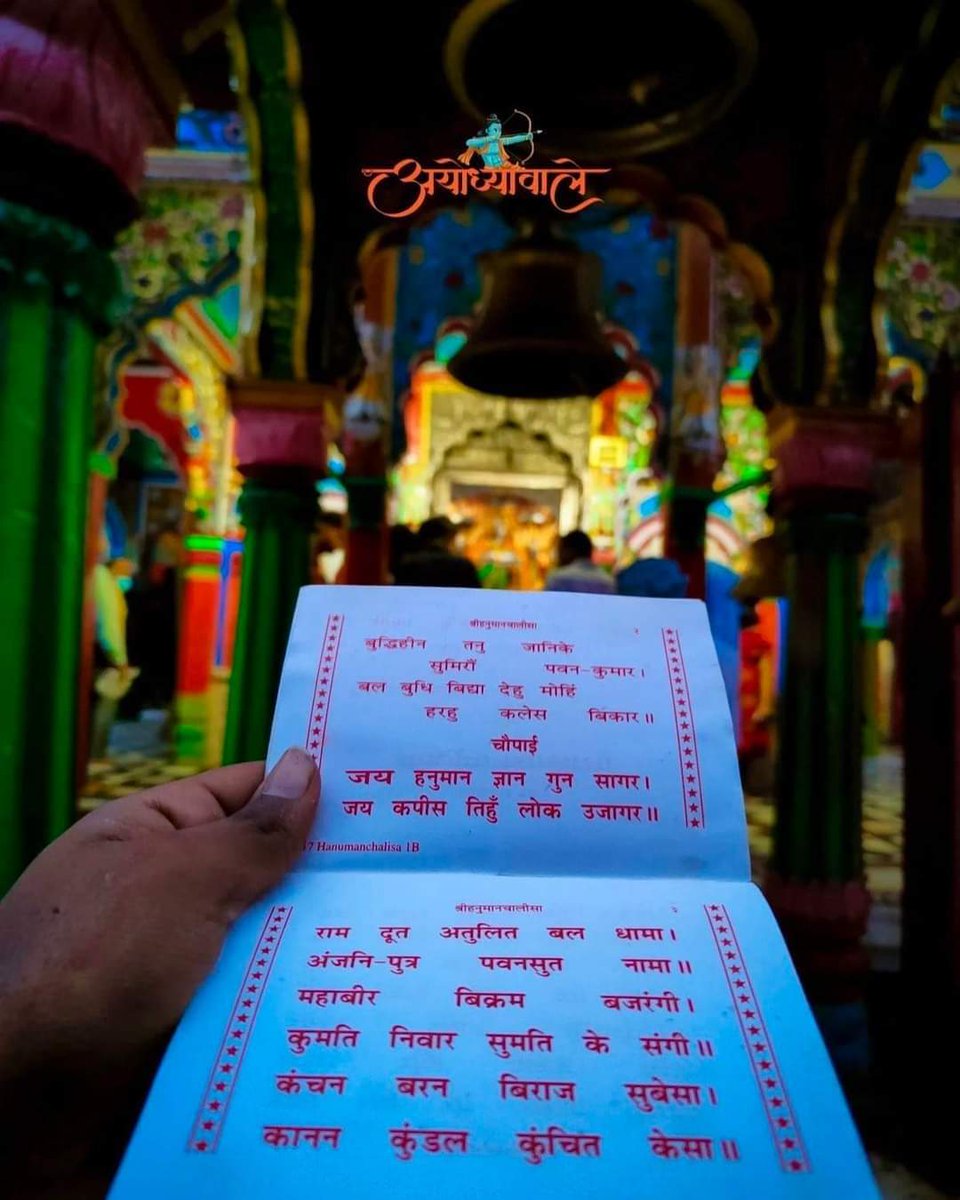 अयोध्यावाले
श्रीहनुमानचालीसा २
बुद्धिहीन तनु जानिके
सुमिरौं पवन-कुमार।
बल बुधि बिद्या देहु मोहिं
हरहु कलेस बिकार॥
चौपाई
जय हनुमान ज्ञान गुन सागर।
जय कपीस तिहुँ लोक उजागर॥
7 Hanumanchalisa 1B
श्रीहनुमानचालीसा ३
राम दूत अतुलित बल धामा।
अंजनि-पुत्र पवनसुत नामा॥
महाबीर बिक्रम बजरंगी।
कुमति निवार सुमति के संगी॥
कंचन बरन बिराज सुबेसा।
कानन कुंडल कुंचित केसा॥